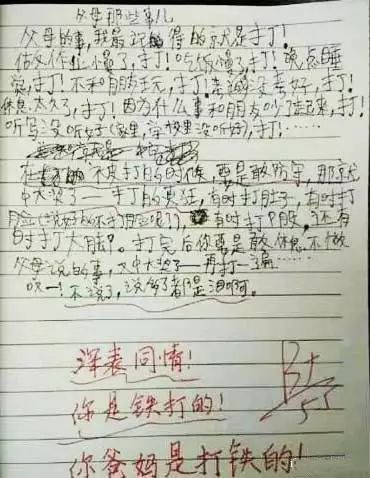 父母那些事儿
父母的事，我最记的得的就是打！
估作业慢了，打！吃饭慢了打！晚点睡
觉，打！不和朋友玩，打！考试没考好，打！
休息太久了，打！因为什么事和朋友吵了起来，打！
听写没听好（家里，学校里没听好），打！……
在 不皮打的时候，要是敢防守，那就
中大奖了——打的更狂，有时打肚子，有时打
脸（说好的不打脸呢！？），有时打P股，还有
时打大腿。打完后你要是敢休息，不做
父母说的事，又中大奖了——再打一遍……
哎—！不说了，说多了都是泪啊。
深表同情！
你是铁打的！
B+
你爸妈是打铁的！